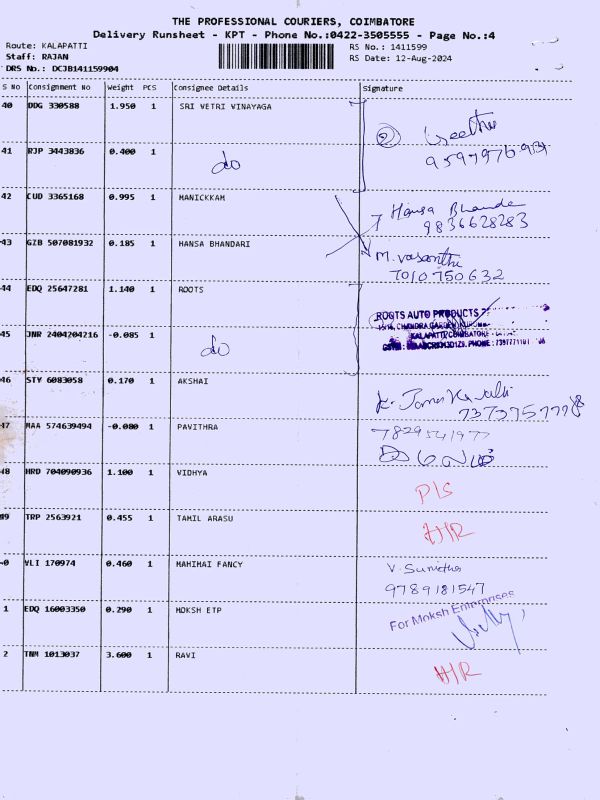 THE PROFESSIONAL COURIERS, COIMBATORE
Delivery Runsheet - KPT - Phone No.:0422-3505555 - Page No.:4
Route: KALAPATTI
RS No.: 1411599
Staff: RAJAN
RS Date: 12-Aug-2024
DRS No.: DCJB141159904
S No Consignment No Weight PCS Consignee Details Signature
40 DDG 330588 1.950 1 SRI VETRI VINAYAGA
2 Geetha
41 RJP 3443836 0.400 1 do
42 CUD 3365168 0.995 1 MANICKKAM
Hansa Bhandari
9836628283
43 GZB 507081932 0.185 1 HANSA BHANDARI
M. Vasanthi
7010750632
44 EDQ 25647281 1.140 1 ROOTS
ROOTS AUTO PRODUCTS
KALAPATTI, COIMBATORE
45 JNR 2404204216 -0.085 1 do
46 STY 6083058 0.170 1 AKSHAI
47 MAA 574639494 -0.080 1 PAVITHRA
7829541977
48 HRD 704090936 1.100 1 VIDHYA
P/S
49 TRP 2563921 0.455 1 TAMIL ARASU
H/R
0 VLI 170974 0.460 1 MAHIMAI FANCY
V. Sunitha
9789181547
1 EDQ 16003350 0.290 1 MOKSH ETP
For Moksh Enterprises
2 TNM 1013037 3.600 1 RAVI
H/R